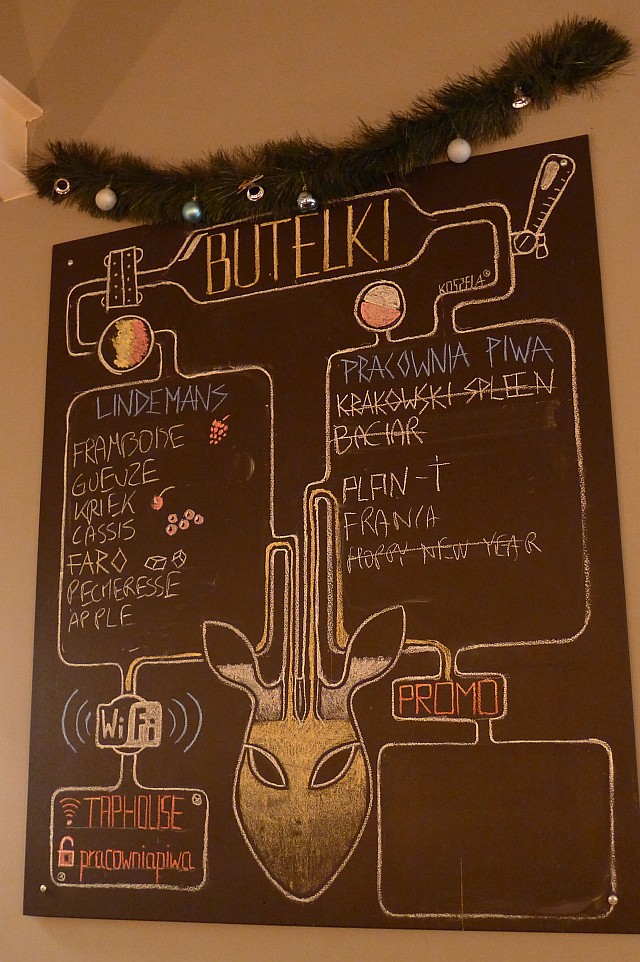 BUTELKI
KOSZELA
LINDEMANS
FRAMBOISE
GUEUZE
KRIEK
CASSIS
FARO
PECHERESSE
APPLE
PRACOWNIA PIWA
KRAKOWSKI SPLEEN
BACIAR
FRANIA
HOPPY NEW YEAR
WiFi
TAPHOUSE
pracowniapiwa
PROMO